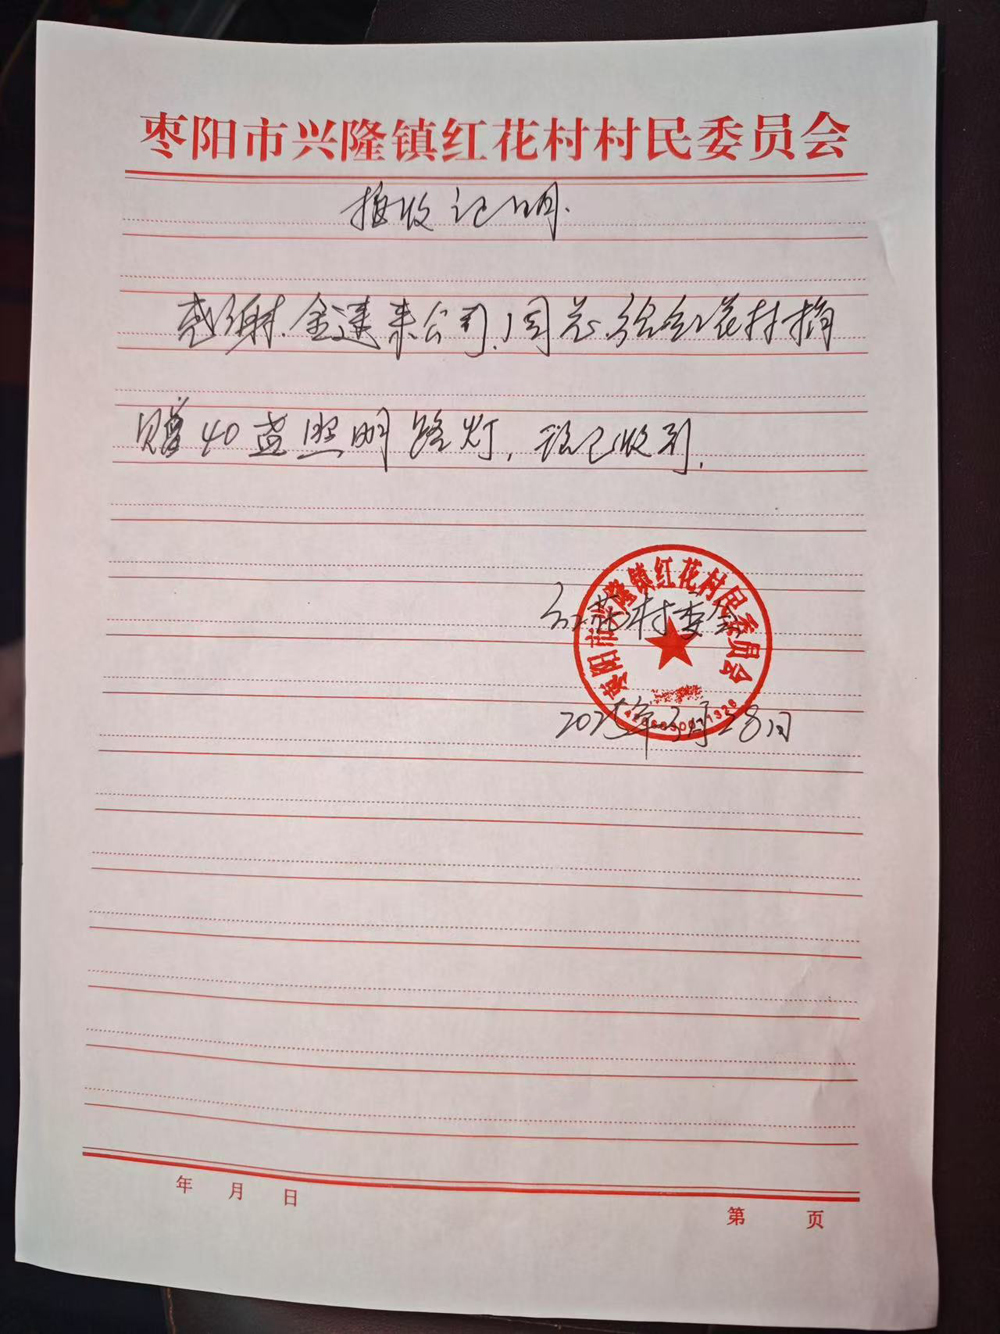 枣阳市兴隆镇红花村村民委员会
接收证明.
感谢金达来公司,周总给红花村捐
赠40盏照明路灯,现已收到.
红花村委会
枣阳市兴隆镇红花村民委员会
2025年3月28日
年 月 日
第 页